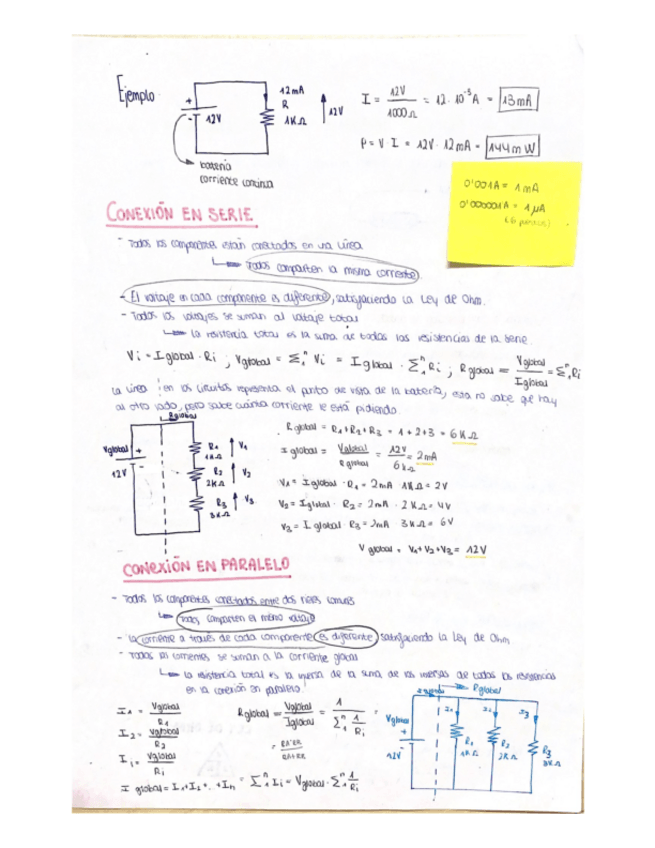 Ejemplo
12V
12mA
R
1KΩ
12V
batería
corriente continua
I = 12V / 1000Ω = 12·10⁻³A = 13mA
P = V·I = 12V·12mA = 144mW
0'001A = 1mA
0'000001A = 1μA
CONEXIÓN EN SERIE
- Todos los componentes están conectados en una línea
↳ Todos comparten la misma corriente.
- El voltaje en cada componente es diferente, satisfaciendo la Ley de Ohm.
- Todos los voltajes se suman al voltaje total
↳ la resistencia total es la suma de todas las resistencias de la serie.
Vi = Iglobal · Ri ; Vglobal = Σ₁ⁿ Vi = Iglobal · Σ₁ⁿ Ri ; Rglobal = Vglobal / Iglobal = Σ₁ⁿ Ri
La línea ¦ en los circuitos representa el punto de vista de la batería, esta no sabe que hay
al otro lado, pero sabe cuánta corriente le está pidiendo.
Rglobal
Vglobal
12V
R1
1KΩ
V1
R2
2KΩ
V2
R3
3KΩ
V3
Rglobal = R1+R2+R3 = 1+2+3 = 6KΩ
Iglobal = Vglobal / Rglobal = 12V / 6kΩ = 2mA
V1 = Iglobal · R1 = 2mA · 1KΩ = 2V
V2 = Iglobal · R2 = 2mA · 2KΩ = 4V
V3 = Iglobal · R3 = 2mA · 3KΩ = 6V
Vglobal = V1+V2+V3 = 12V
CONEXIÓN EN PARALELO
- Todos los componentes conectados entre dos comunes
↳ Todos comparten el mismo voltaje
- La corriente a través de cada componente es diferente satisfaciendo la Ley de Ohm
- Todas las corrientes se suman a la corriente global
↳ la resistencia total es la inversa de la suma de las inversas de todas las resistencias
en la conexión en paralelo
I1 = Vglobal / R1
I2 = Vglobal / R2
Ii = Vglobal / Ri
Rglobal = Vglobal / Iglobal = 1 / Σ₁ⁿ 1/Ri =
Iglobal = I1+I2+..+In = Σ₁ⁿ Ii = Vglobal · Σ₁ⁿ 1/Ri
Rglobal
Vglobal
12V
I1
I2
I3
R1
1KΩ
R2
2KΩ
R3
3KΩ